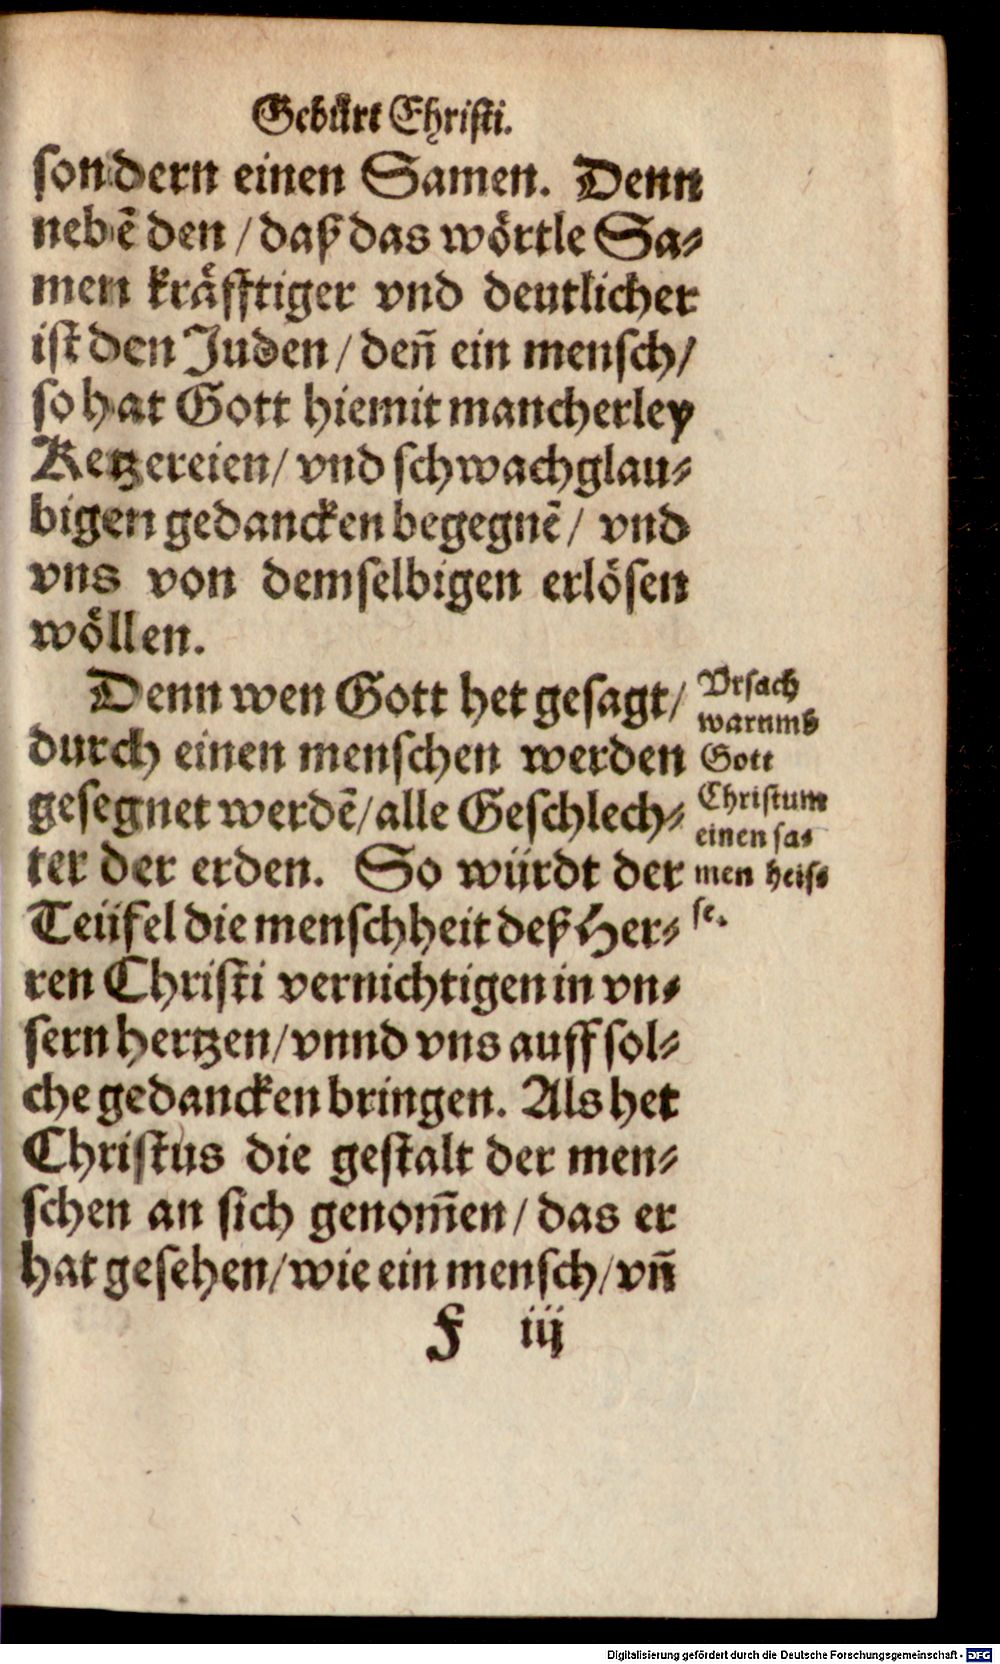 Gebürt Christi.
sondern einen Samen. Denn
nebẽ den / daß das wörtle Sa⸗
men kräfftiger vnd deutlicher
ist den Juden / deñ ein mensch /
so hat Gott hiemit mancherley
Ketzereien / vnd schwachglau⸗
bigen gedancken begegnẽ / vnd
vns von demselbigen erlösen
wöllen.
Denn wen Gott het gesagt /
durch einen menschen werden
gesegnet werdẽ / alle Geschlech⸗
ter der erden. So würdt der
Teüfel die menschheit deß Her⸗
ren Christi vernichtigen in vn⸗
sern hertzen / vnnd vns auff sol⸗
che gedancken bringen. Als het
Christus die gestalt der men⸗
schen an sich genom̃en / das er
hat gesehen / wie ein mensch / vñ
F iij
Vrsach
warumb
Gott
Christum
einen sa⸗
men heis⸗
se.
Digitalisierung gefördert durch die Deutsche Forschungsgemeinschaft - DFG